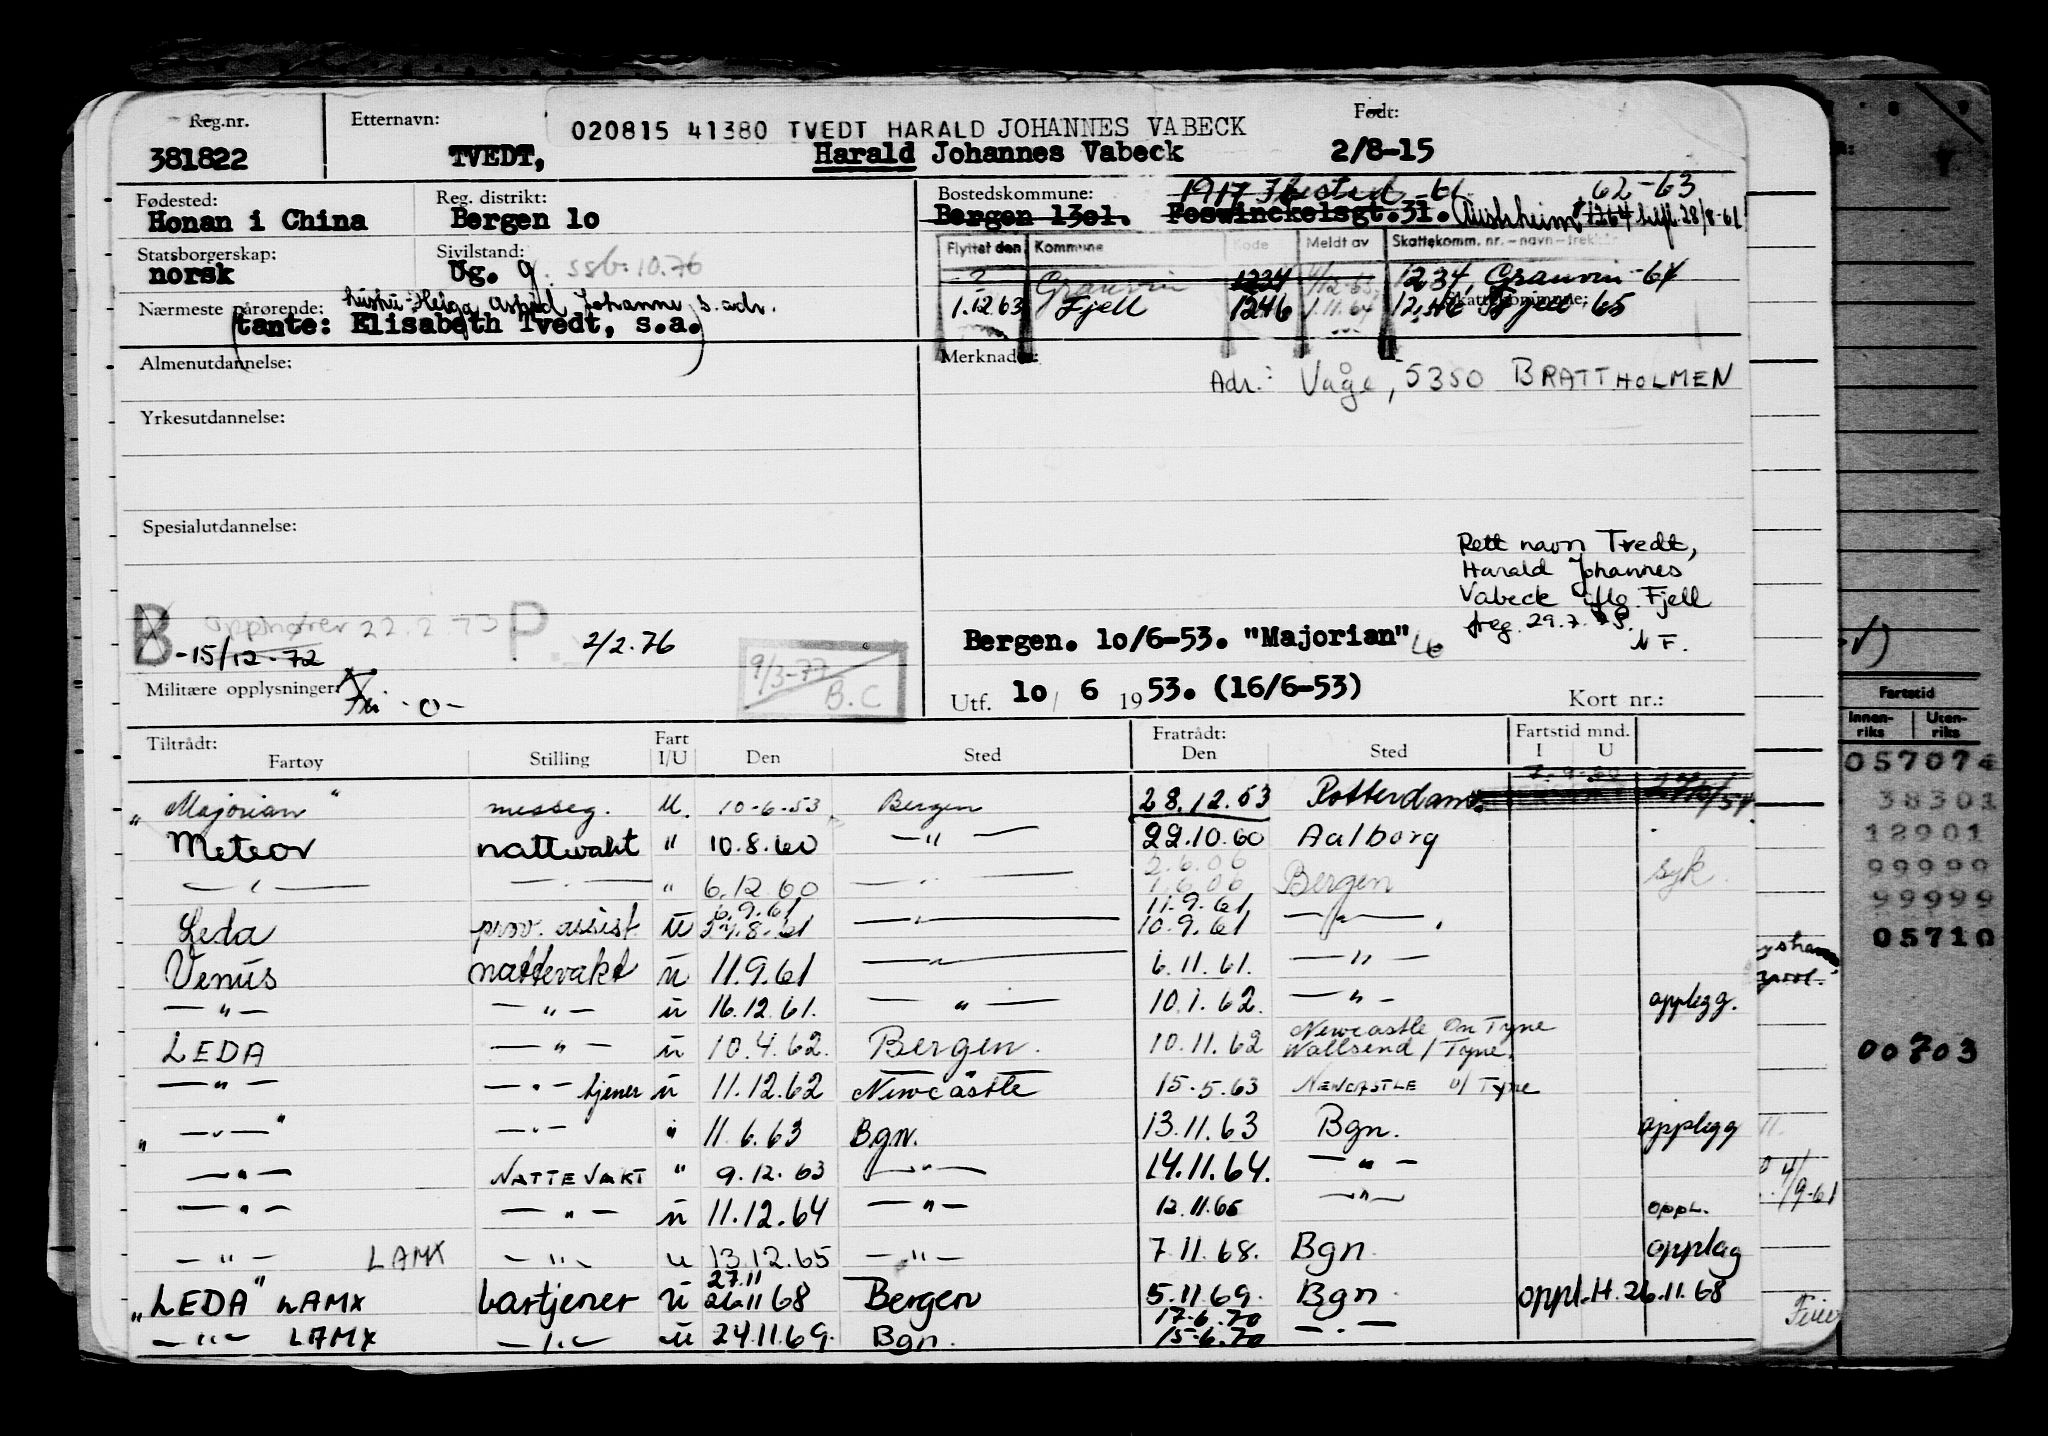 Reg.nr. Etternavn: Født:
020815 41380 TVEDT HARALD JOHANNES VABECK
381822 TVEDT, Harald Johannes Vabeck 2/8-15
Fødested: Reg. distrikt: Bostedskommune: 62-63
Honan i China Bergen 1o Bergen 13el. Foswinckelsgt.31.
Statsborgerskap: Sivilstand: Flyttet den Kommune Kode Meldt av Skattekomm. nr. - navn - trekkår
norsk Ug. g. ssb. 10.76 ? Granvin 1234 1234, Granvin -64
Nærmeste pårørende: hustru: Helga Johanne s. adr.
(tante: Elisabeth Tvedt, s.a.) 1.12 63 Fjell 1246 1.11.64 1246 Fjell 65
Skattekommune:
Almenutdannelse: Merknader:
Adr.: Våge, 5350 BRATTHOLMEN
Yrkesutdannelse:
Spesialutdannelse:
Rett navn Tvedt,
Harald Johannes
Vabeck iflg. Fjell
freg. 29.7.
N F.
B opphører 22.2.73 P
-15/12-72 2/2.76
9/3-77
B.C
Bergen. 1o/6-53. "Majorian"
Militære opplysninger: Fri -0-
Utf. 1o/ 6 1953. (16/6-53) Kort nr.:
Tiltrådt: Fart Fratrådt: Fartstid mnd.
Fartøy Stilling I/U Den Sted Den Sted I U
"Majorian" messeg. U. 10-6-53 Bergen 28.12.53 Rotterdam
Meteor nattevakt " 10.8.60 —"— 22.10.60 Aalborg
—"— —"— " 6.12.60 —"— Bergen syk.
6.9.61 11.9.61
Leda prov. assist. U —"— 10.9.61 —"—
Venus nattevakt U 11.9.61 —"— 6.11.61. —"—
—"— —"— U 16.12.61. —"— 10.1.62. —"— opplegg.
LEDA —"— U 10.4.62. Bergen. 10.11.62 Newcastle On Tyne
Wallsend / Tyne.
—"— —"— tjener U 11.12.62 Newcastle 15.5.63 NEWCASTLE o/ TYNE
"—"—" —"— " 11.6.63 Bgn. 13.11.63 Bgn. opplegg
—"— NATTEVAKT " 9.12.63 —"— 14.11.64. —"—
—"— —"— U 11.12.64 —"— 12.11.65 —"— OPPL.
—"— LAMX —"— U 13.12.65 —"— 7.11.68. Bgn. opplag
27.11
"LEDA" LAMX bartjener U 26.11 68 Bergen 5.11 69. Bgn. oppl. H. 26.11.68
17.6.70
—"— LAMX —"— U 24.11.69. Bgn. 15.6.70 —"—
Fartstid
Innen-riks Uten-riks
057074
38301
12901
99999
99999
05710
00703
4/9-61